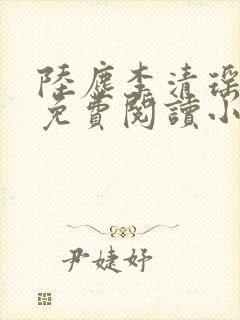 陸塵李清瑤
免費閱讀小
尹婕妤